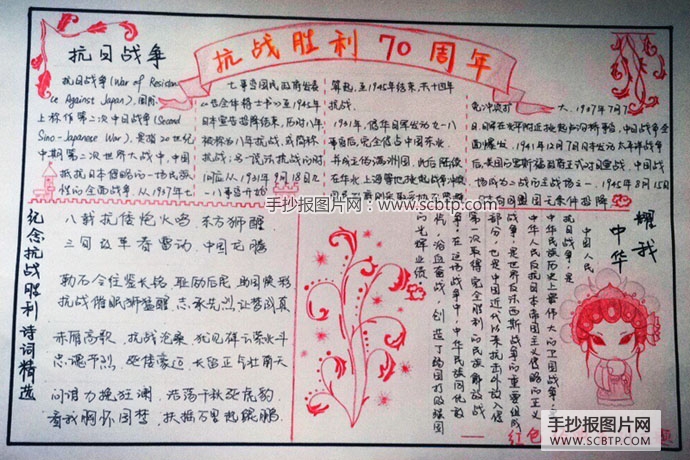 抗战胜利70周年
抗日战争
抗日战争(War of Resistan
ce Against Japan),国际
上称作第二次中日战争(Second
Sino-Japanese War),是指20世纪
中期第二次世界大战中,中国
抵抗日本侵略的一场民族
性的全面战争,从1937年七
七事变国民政府发表
《告全体将士书》至1945年
日本宣告投降结束,历时八年
被称为八年抗战,或简称
抗战;另一说法抗战的时
间应从1931年9月18日九
一八事变开始
算起,至1945年结束,共十四年
抗战.
1931,侵华日军发动九一八
事变后,完全侵占中国东北,
并成立伪满洲国,此后陆续
在华北上海等地挑起战争冲
1937年7月7
日日军在北平附近挑起卢沟桥事变,中日战争全面
爆发,1941年12月7日日本发动太平洋战争
后,美国的罗斯福政府正式对日宣战,中国战
场成为二战的主战场之一.1945年8月15日
手抄报图片网:www.scbtp.com
纪念抗战胜利诗词精选
八载抗倭炮火鸣 东方狮醒
三旬改革春雷动,中国龙腾
勒石令住鉴长铭 耻励后昆 助国焕彩
抗战催眠狮猛醒 志承先烈 让梦成真
赤眉高歌,抗战沧桑
忠魂千烈,长留正气壮南天
浩荡千秋
看我胸怀国梦,扶摇万里起鲲鹏
耀我
中华
中国人民
抗日战争,是
中华民族历史上最伟大的卫国战争,是
中华人民反抗日本帝国主义侵略的正义
战争,是世界反法西斯战争的重要组成
部分,也是中国近代以来抗击外敌入侵
第一次取得完全胜利的民族解放战
争,在这场战争中,中华民族同仇敌
忾,浴血奋战,创造了弱国打败强国
的光辉业绩.
红色
手抄报图片网
WWW.SCBTP.COM